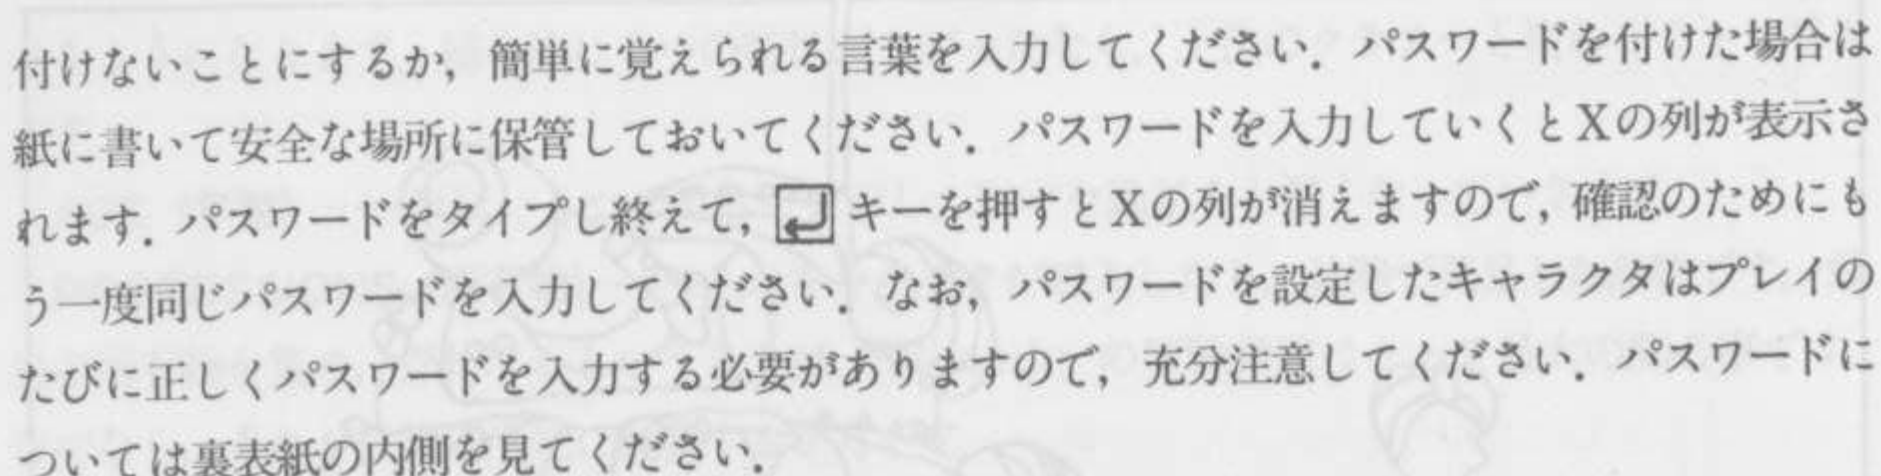 付けないことにするか，簡単に覚えられる言葉を入力してください．パスワードを付けた場合は
紙に書いて安全な場所に保管しておいてください．パスワードを入力していくとXの列が表示さ
れます．パスワードをタイプし終えて，↵キーを押すとXの列が消えますので，確認のためにも
う一度同じパスワードを入力してください．なお，パスワードを設定したキャラクタはプレイの
たびに正しくパスワードを入力する必要がありますので，充分注意してください．パスワードに
ついては裏表紙の内側を見てください．